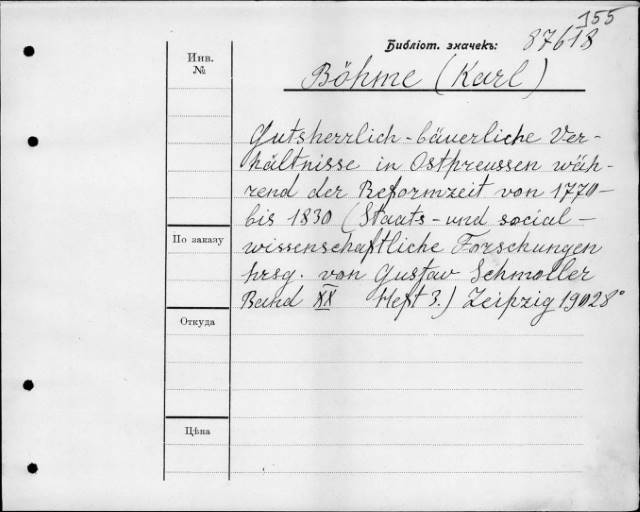 155
Библіот. значекъ: 87618
Инв.
№
Böhme (Karl)
Gutsherrlich-bäuerliche Ver-
hältnisse in Ostpreussen wäh-
rend der Reformzeit von 1770-
bis 1830 (Staats- und social-
По заказу
wissenschaftliche Forschungen
hrsg. von Gustav Schmoller
Band XX Heft 3.) Leipzig 1902 8°
Откуда
Цѣна